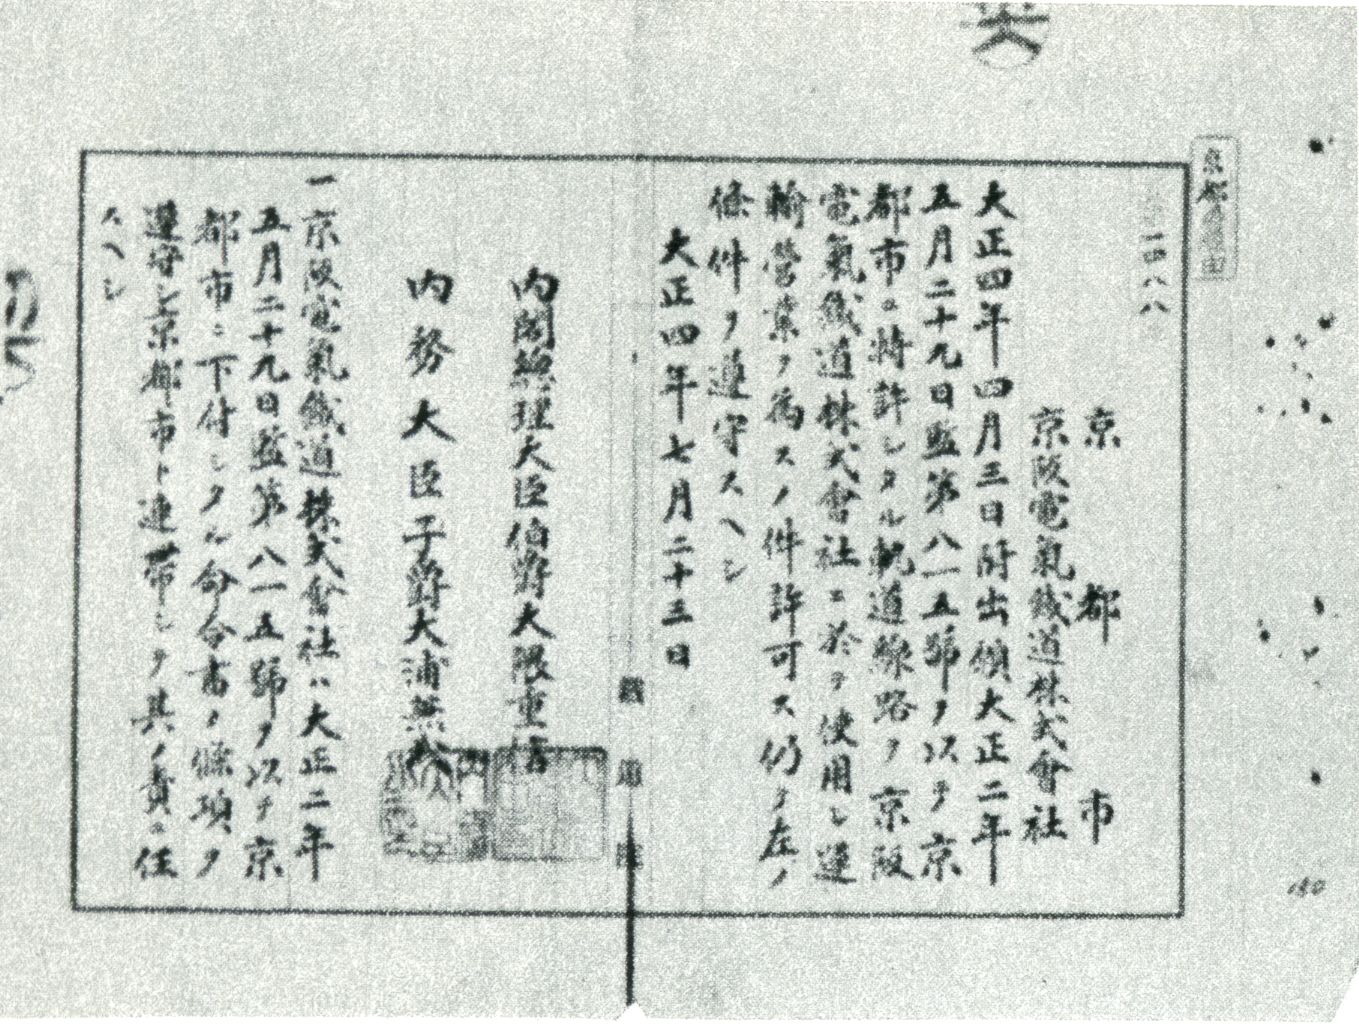 一四八八
京都市
京阪電氣鐵道株式會社
大正四年四月三日附出願大正二年
五月二十九日監第八一五號ヲ以テ京
都市ニ特許シタル軌道線路ヲ京阪
電氣鐵道株式會社ニ於テ使用シ運
輸營業ヲ為スノ件許可ス仍テ左ノ
條件ヲ遵守スヘシ
大正四年七月二十三日
內閣總理大臣伯爵大隈重信
內務大臣子爵大浦兼武
鐵道院
一京阪電氣鐵道株式會社ハ大正二年
五月二十九日監第八一五號ヲ以テ京
都市ニ下付シタル命令書ノ條項ヲ
遵守シ京都市ト連帶シテ其ノ責ニ任
スヘシ